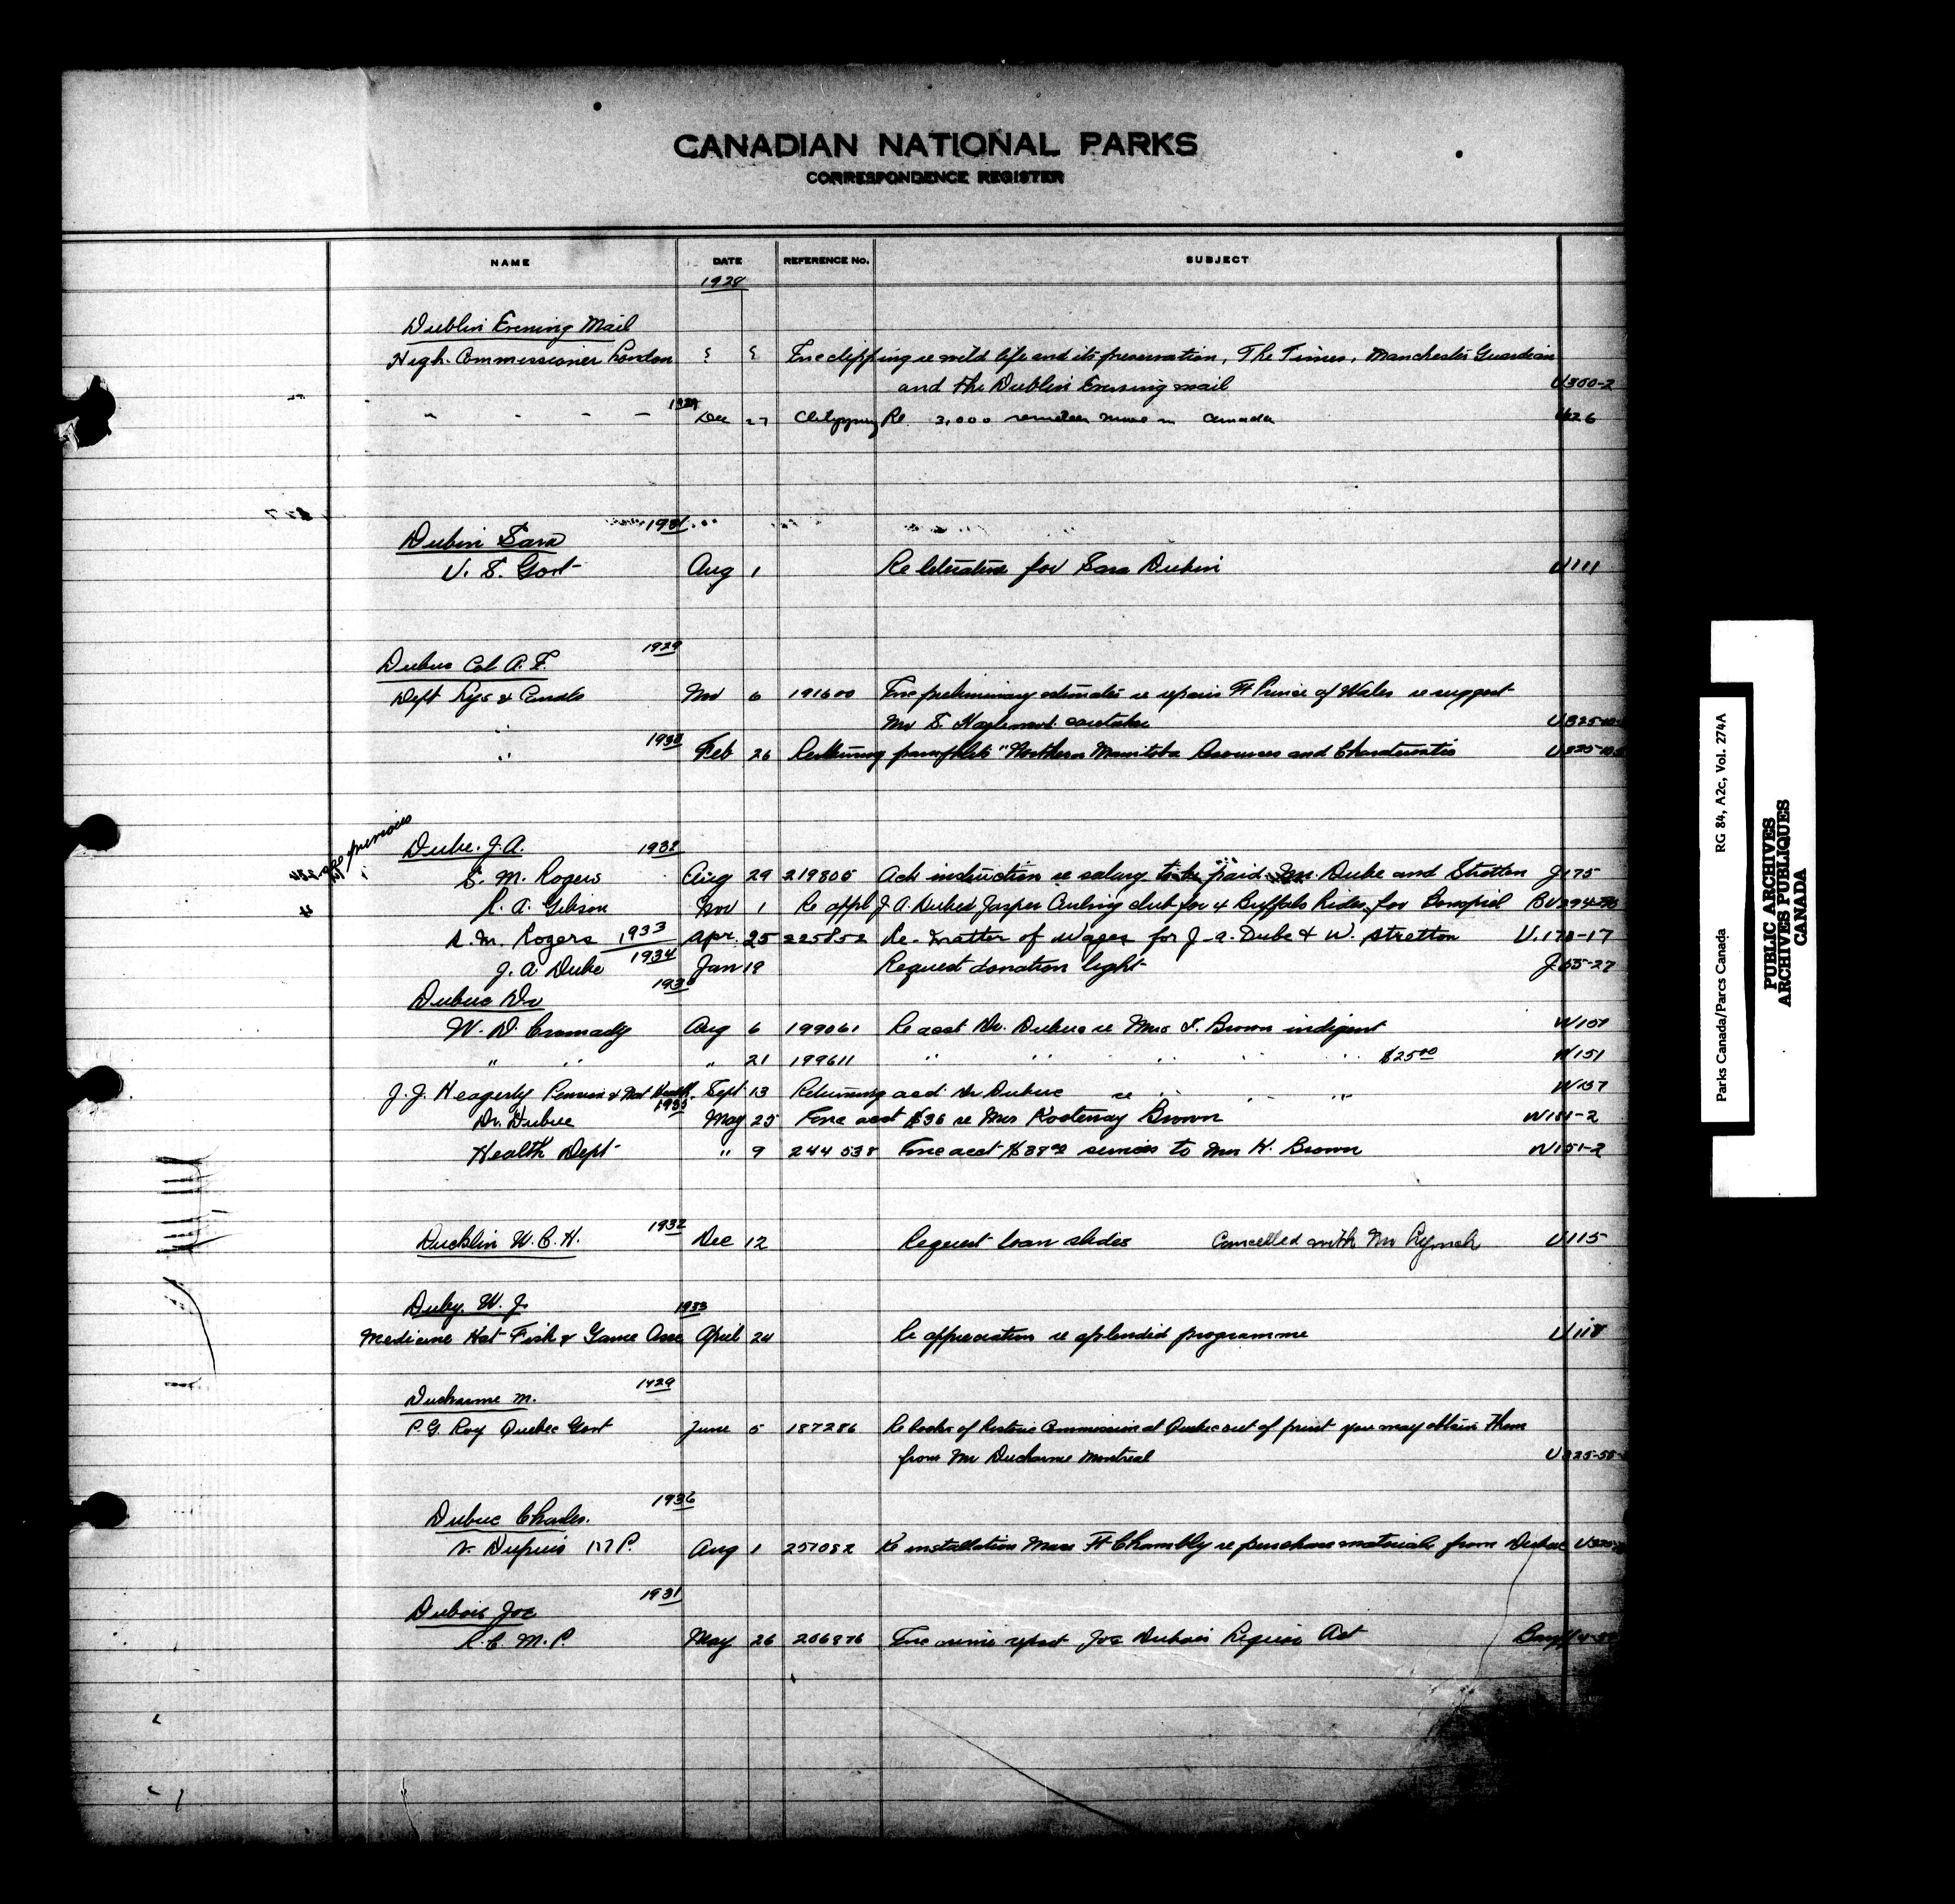 CANADIAN NATIONAL PARKS
CORRESPONDENCE REGISTER
NAME DATE REFERENCE No. SUBJECT
1928
Dublin Evening Mail
High Commissioner London Enc clipping re wild life and its preservation, The Times, Manchester Guardian
and the Dublin Evening mail U300-2
1929
Dec 27 Clipping Re 3,000 reindeer move in Canada U26
1931
Dubin Sara
U. S. Govt Aug 1 Re literature for Sara Dubin U111
1929
Dubuc Col A. F.
Dept Rys & Canals Nov 6 191600 Enc preliminary estimates re repairs Ft Prince of Wales re suggest
Mr S. caretaker U325-10
1930
" Feb 26 Returning pamphlets "Northern Manitoba Resources and U325-10
see page previous
Dube. J. A. 1932
S. M. Rogers Aug 29 219805 Ack instruction re salary to be paid Mr. Dube and Stretton J175
R. A. Gibson Nov 1 Re appl J A Dubed Jasper Curling club for 4 Buffalo Hides for Bonspiel
S. M. Rogers 1933 Apr. 25 225852 Re- matter of wages for J-a. Dube & W. Stretton U.173-17
1934
J. A Dube Jan 19 Request donation light J.65-27
1930
Dubuc Dr
W. D. Cromarty Aug 6 199061 Re acct Dr. Dubuc re Mrs I. Brown indigent W151
" " " 21 199611 " " " " " $25.00 W151
J. J. Heagerty Pension & Nat Health. Sept 13 Returning acct Dr Dubuc re " " " W157
1935
Dr. Dubuc May 25 Enc acct $38 re Mrs Kootenay Brown W151-2
Health Dept " 9 244538 Enc acct $38.00 services to Mrs K. Brown W151-2
1932
Ducklin W. C. H. Dec 12 Request loan slides Cancelled with Mr Lynch U115
Duby. W. J. 1933
Medicine Hat Fish & Game Assc April 24 Re appreciation re splendid programme U118
1929
Ducharme M.
P. G. Roy Quebec Govt June 5 187286 Re books of Historic Commission at Quebec out of print you may obtain them
from Mr Ducharme Montreal U325-55
1936
Dubuc Charles.
V. Dupuis M P. Aug 1 257082 Re installation Ft Chambly re purchase materials from Dubuc
1931
Dubois Joe
R. C. M. P. May 26 206876 Enc crime report Joe Dubois Liquor Act
Parks Canada/Parcs Canada RG 84, A2c, Vol. 274A
PUBLIC ARCHIVES
ARCHIVES PUBLIQUES
CANADA